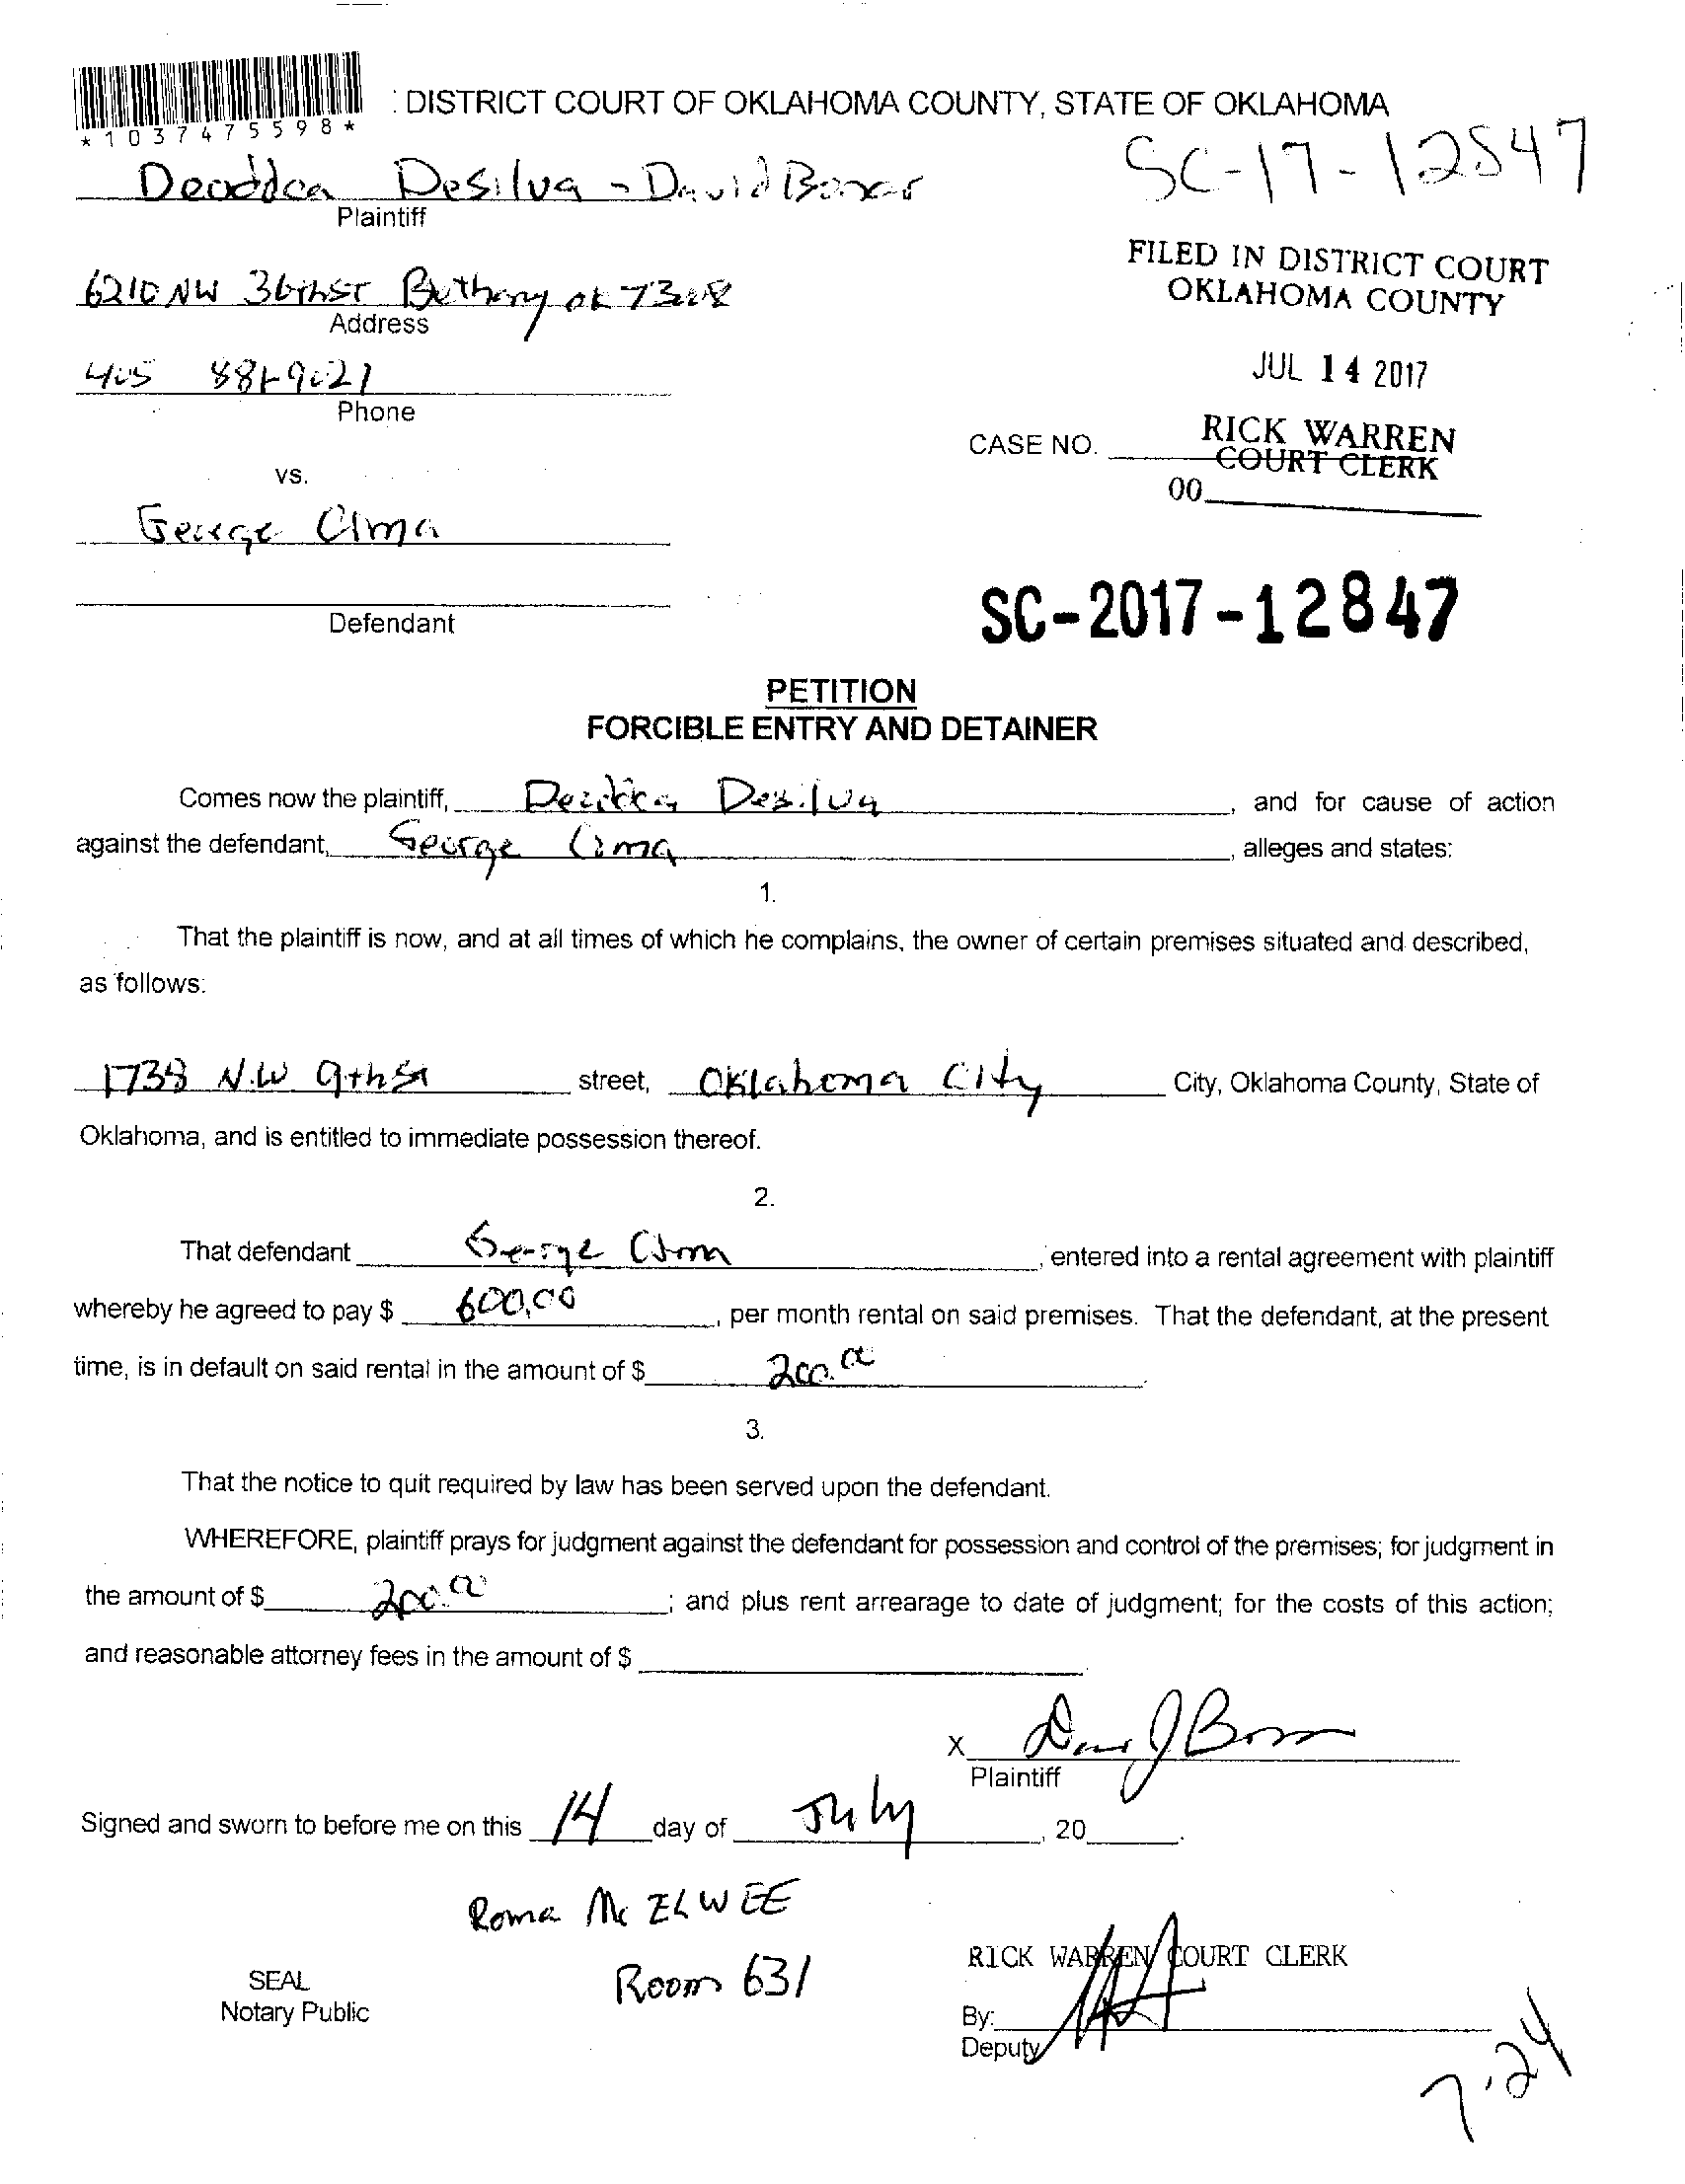 *1037475598*
: DISTRICT COURT OF OKLAHOMA COUNTY, STATE OF OKLAHOMA
SC-17-12847
Desilva - David
Plaintiff
FILED IN DISTRICT COURT
OKLAHOMA COUNTY
6210 NW 36th ST Bethany OK 73008
Address
JUL 14 2017
405
Phone
RICK WARREN
CASE NO.
COURT CLERK
vs.
00
George Cima
SC-2017-12847
Defendant
PETITION
FORCIBLE ENTRY AND DETAINER
Comes now the plaintiff, Desilva, and for cause of action
against the defendant, George Cima, alleges and states:
1.
That the plaintiff is now, and at all times of which he complains, the owner of certain premises situated and described,
as follows:
1738 N.W 9th St street, Oklahoma City City, Oklahoma County, State of
Oklahoma, and is entitled to immediate possession thereof.
2.
That defendant George Cima, entered into a rental agreement with plaintiff
whereby he agreed to pay $ 600.00, per month rental on said premises. That the defendant, at the present
time, is in default on said rental in the amount of $ 200.00.
3.
That the notice to quit required by law has been served upon the defendant.
WHEREFORE, plaintiff prays for judgment against the defendant for possession and control of the premises; for judgment in
the amount of $ 200.00; and plus rent arrearage to date of judgment; for the costs of this action;
and reasonable attorney fees in the amount of $
X
Plaintiff
Signed and sworn to before me on this 14 day of July, 20 .
Roma McELWEE
RICK WARREN COURT CLERK
SEAL
Room 631
Notary Public
By:
Deputy
7.24